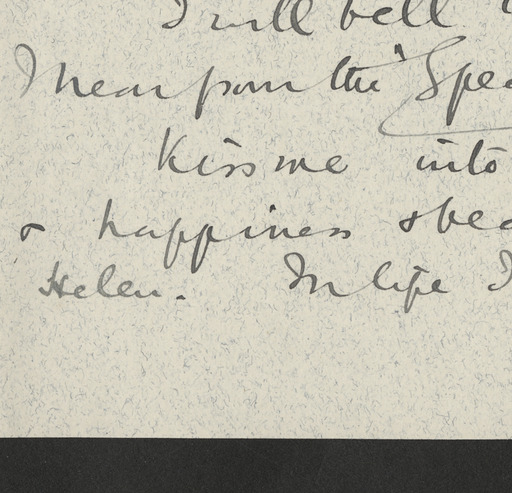 I will tell
I hear from the "Spea
Kiss me into
& happiness & bea
Helen. In life I